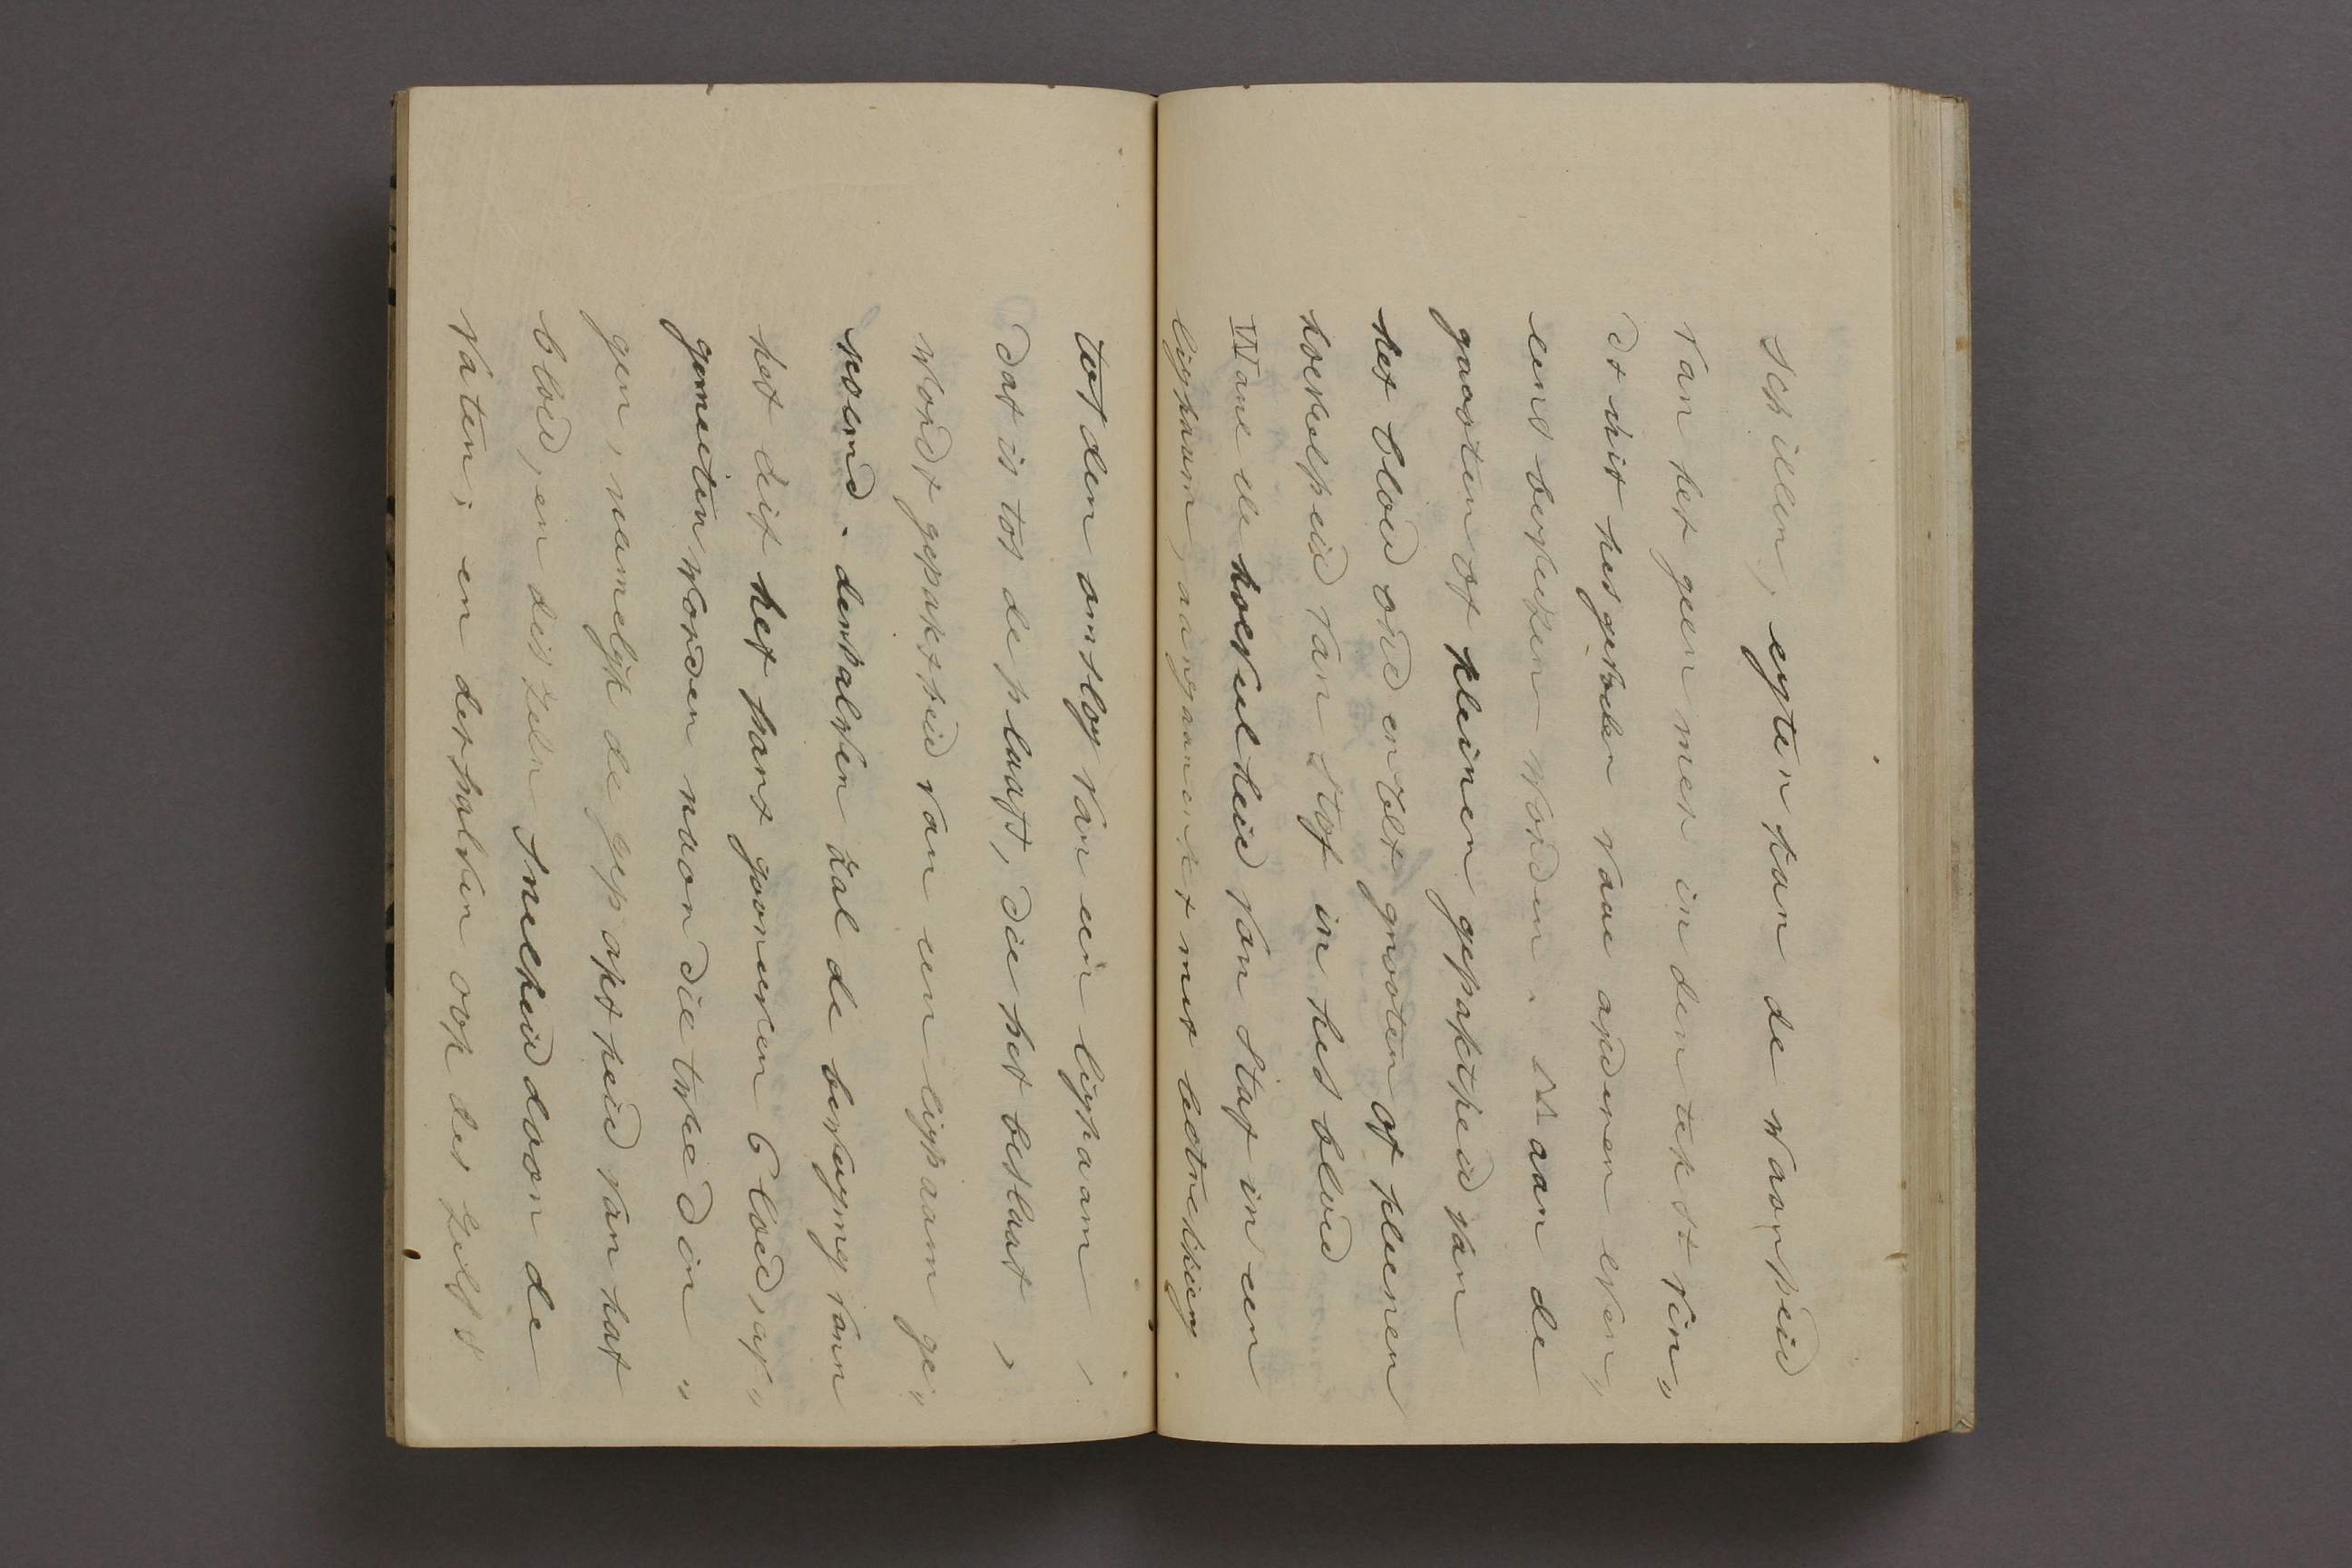 schillen, egter kan de waarheid
van het geen men in den tekst vin„
dt uit het getal van aderen even„
eens berekent worden. Waan de
grooten of kleinen gepaktheid van
het bloed ord en blet grooten of kleinen
hoeveelheid van stof in het bloed
Wane de hoeveelheid van staf in een
lighaam, aangaande met betrekking.
tot den omslag van een lighaam,
dat is tot de plaats, die het beslaat,
word gepaktheid van een lighaam ge„
noemd. denhalven zal de beweging vann
het dit het hart gaanenen bloed, af„
gemeeten worden naar die twee din„
gen, namelyk de gepaktheid van hat
bloed, en des zelv snelheid doon de
vaten; en derhalven ook des zelfs